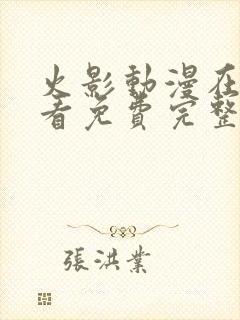 火影動漫在
看免費完整
張洪業